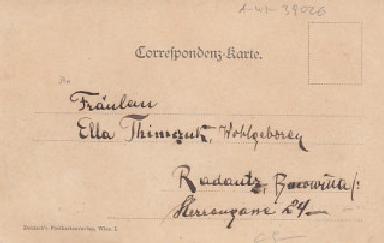 A-wt- 39026
Correspondenz-Karte.
An
Fräulein
Ella Thimczuk, Wohlgeboren
Radautz, Bucowina/:
Herrengasse 24.
Deutsch's Postkartenverlag, Wien, I.